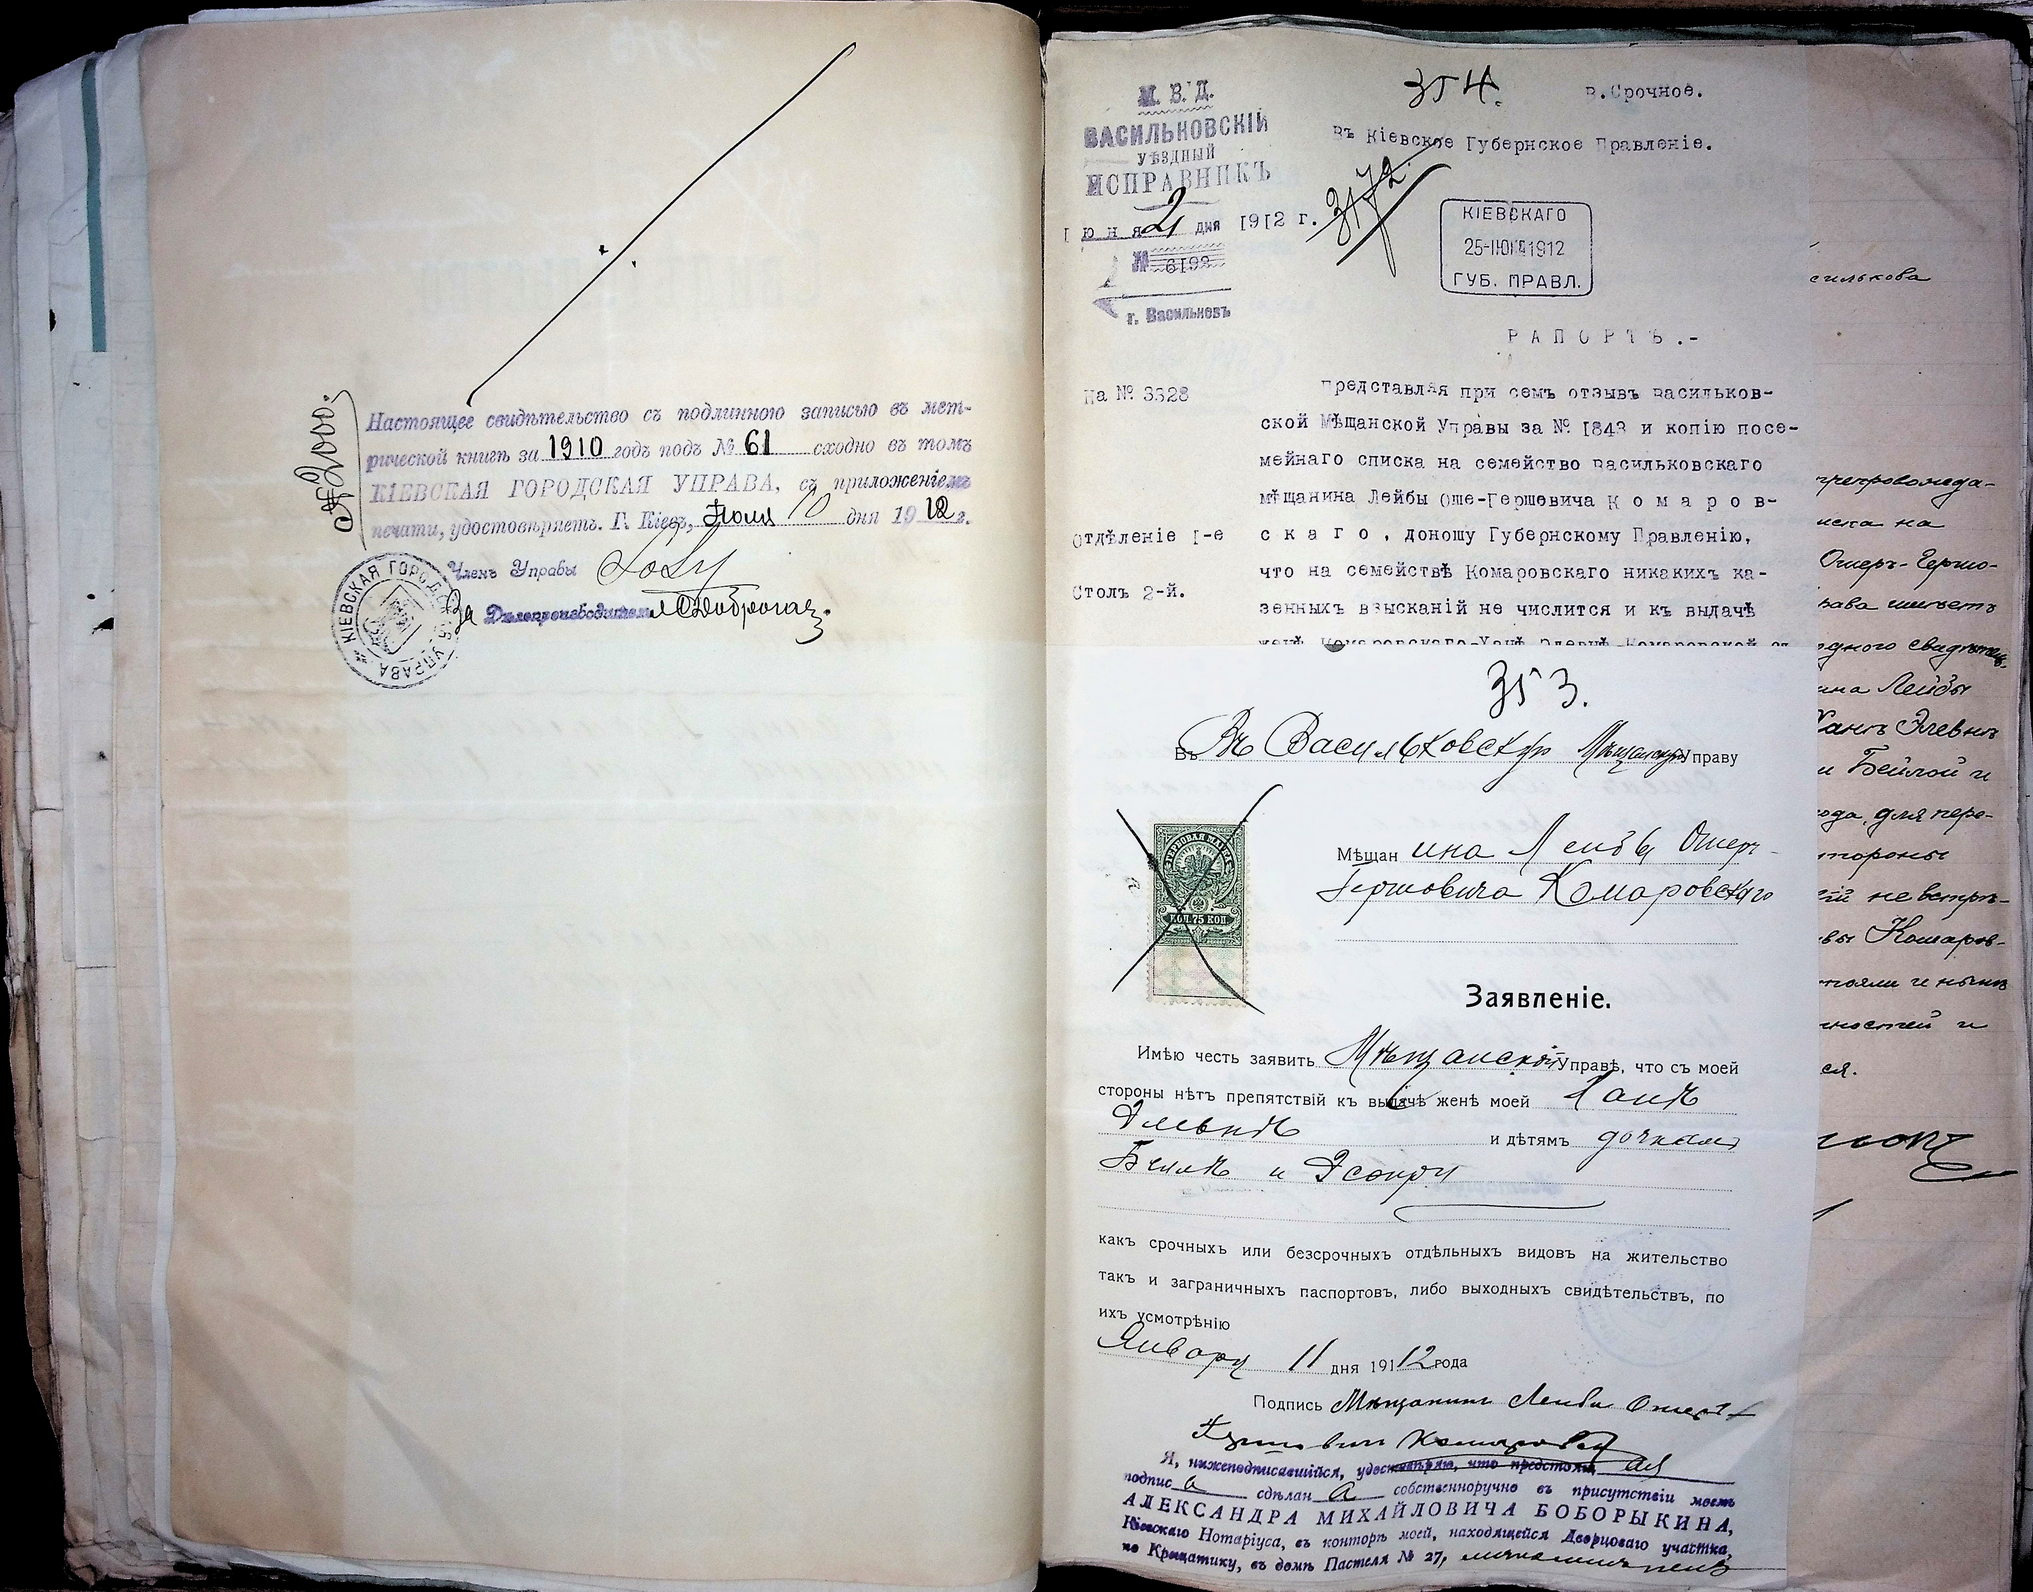 № 2000.
Настоящее свидѣтельство съ подлинною записью въ мет-
рической книгѣ за 1910 годъ подъ № 61 сходно въ томъ
КІЕВСКАЯ ГОРОДСКАЯ УПРАВА, съ приложеніемъ
печати, удостовѣряетъ. Г. Кіевъ, Іюля 10 дня 1912 г.
Членъ Управы
За Дѣлопроизводитель
КІЕВСКАЯ ГОРОДСКАЯ УПРАВА
354.
в.Срочное.
М. В. Д.
ВАСИЛЬКОВСКІЙ
УѢЗДНЫЙ
ИСПРАВНИКЪ
Іюня 21 дня 1912 г.
№ 6192
г. Васильковъ
Въ Кіевское Губернское Правленіе.
3172.
КІЕВСКАГО
25-ІЮНЯ1912
ГУБ. ПРАВЛ.
РАПОРТЪ.-
На № 3328
Отдѣленіе I-е
Столъ 2-й.
Представляя при семъ отзывъ Васильков-
ской Мѣщанской Управы за № 1843 и копію посе-
мейнаго списка на семейство Васильковскаго
мѣщанина Лейбы Оше-Гершевича Комаров-
скаго, доношу Губернскому Правленію,
что на семействѣ Комаровскаго никакихъ ка-
зенныхъ взысканій не числится и къ выдачѣ
женѣ Комаровскаго-Ханѣ Элевнѣ-Комаровской
353.
Въ Въ Васильковскую Мѣщанскую Управу
КОП. 75 КОП.
Мѣщанина Лейбы Ошер-
Гершовича Комаровскаго
Заявленіе.
Имѣю честь заявить Мѣщанской Управѣ, что съ моей
стороны нѣтъ препятствій къ выдачѣ женѣ моей Ханѣ
Эльевнѣ и дѣтямъ дочкамъ
Бейлѣ и Эсфири
какъ срочныхъ или безсрочныхъ отдѣльныхъ видовъ на жительство
такъ и заграничныхъ паспортовъ, либо выходныхъ свидѣтельствъ, по
ихъ усмотрѣнію
Января 11 дня 1912 года
Подпись Мѣщанинъ Лейба Ошеръ-
Гершовичъ Комаровскій
Я, нижеподписавшійся, удостовѣряю, что предстоящая
подпись сдѣлана собственноручно въ присутствіи моемъ
АЛЕКСАНДРА МИХАЙЛОВИЧА БОБОРЫКИНА,
Кіевскаго Нотаріуса, въ конторѣ моей, находящейся Дворцоваго участка,
по Крещатику, въ домѣ Пастеля № 27,
силькова
препровожда-
иска на
Ошеръ-Гершо-
рава имѣетъ
одного свидѣтель-
ина Лейбы
Ханѣ Элевнѣ
и Бейлой и
года, для пере-
стороны
не встрѣ-
Комаров-
стояли и нынѣ
ностей и
ся.